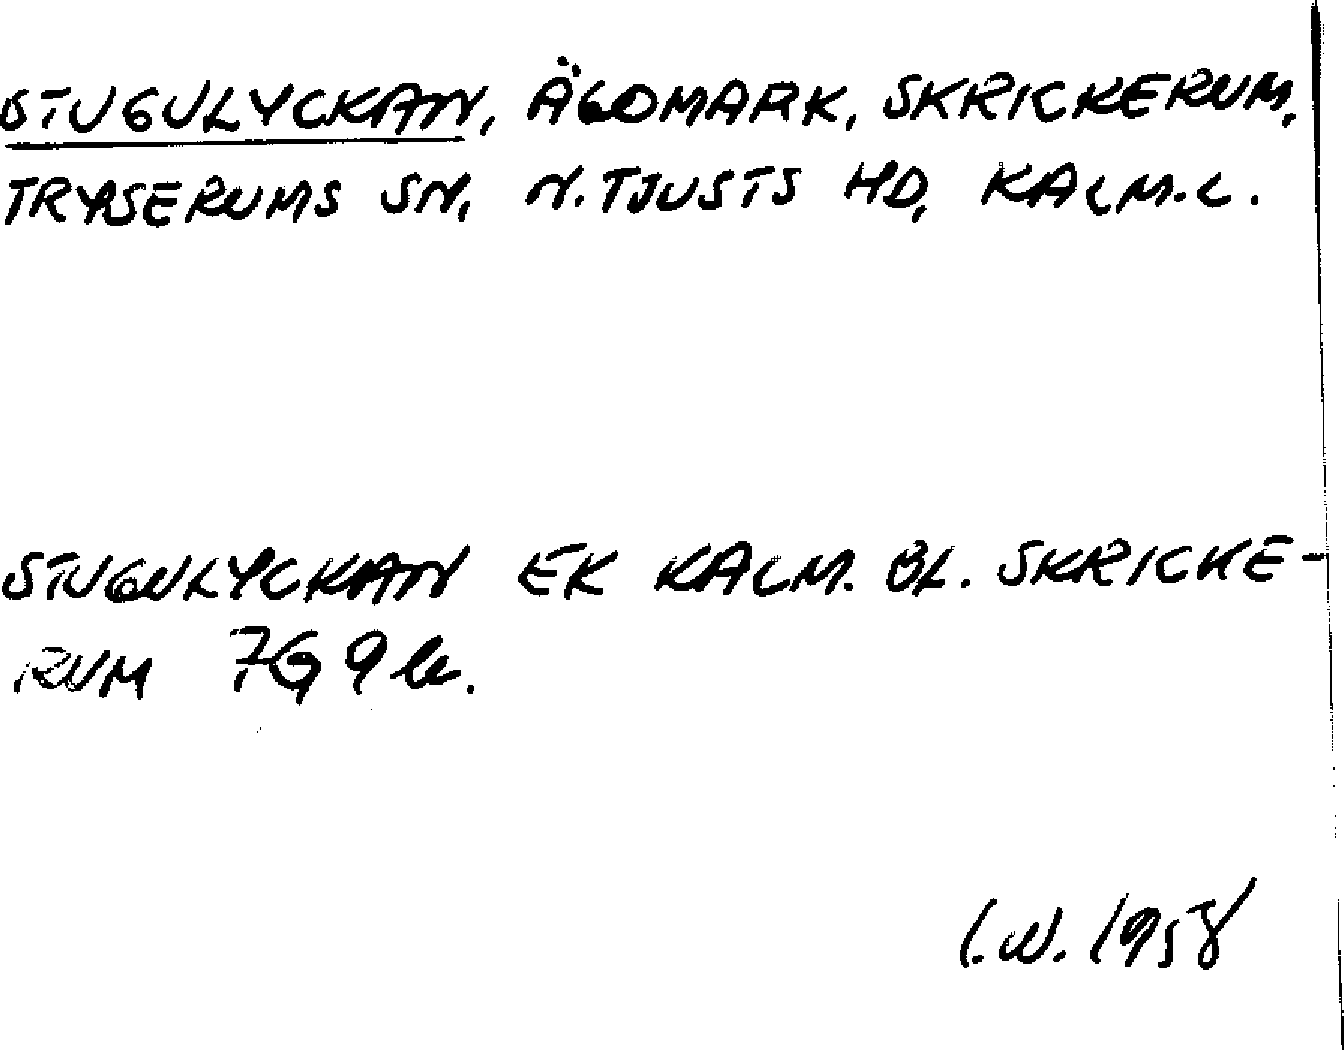 STUGULYCKAN, ÄGOMARK, SKRICKERUM,
TRYSERUMS SN, N. TJUSTS HD, KALM. L.
STUGULYCKAN EK KALM. BL. SKRICKE-
RUM 7G 9b.
I.W. 1958